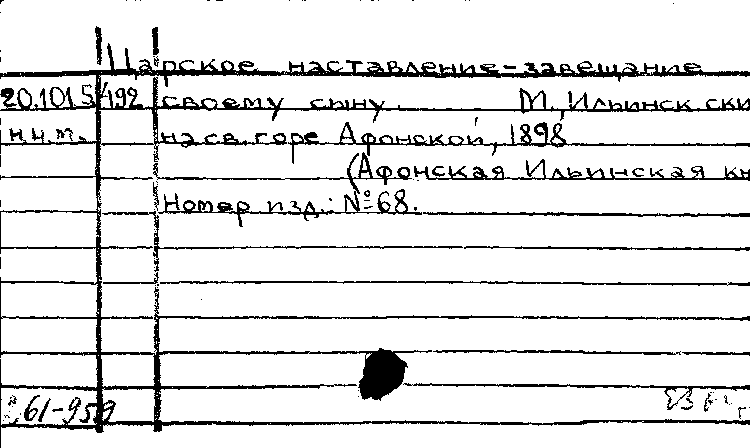 Царское наставление-завещание
20.101 5/492 своему сыну. М., Ильинск. ски
н.и.т. на св. горе Афонской, 1898
(Афонская Ильинская кн
Номер изд.: № 68.
61-959